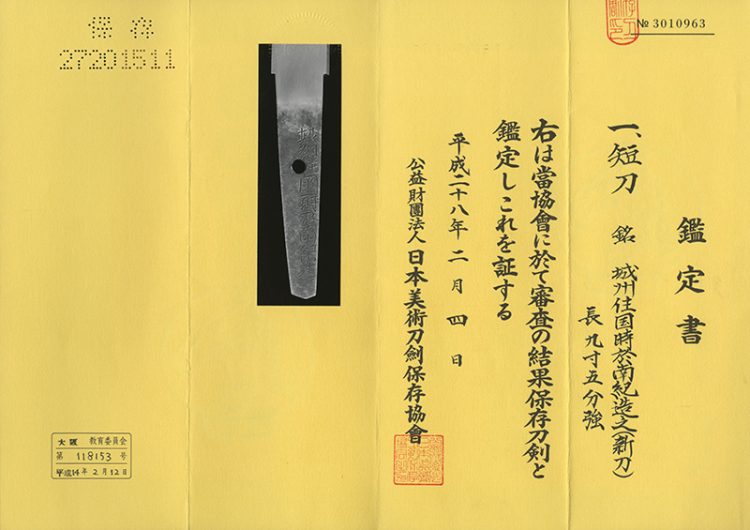 № 3010963
鑑定書
一、短刀 銘 城州住国時於南紀造之(新刀)
長九寸五分強
右は當協會に於て審査の結果保存刀剣と
鑑定しこれを証する
平成二十八年二月四日
公益財團法人日本美術刀劍保存協會
保存
27201511
大阪 教育委員会
第 118153 号
平成14年2月12日